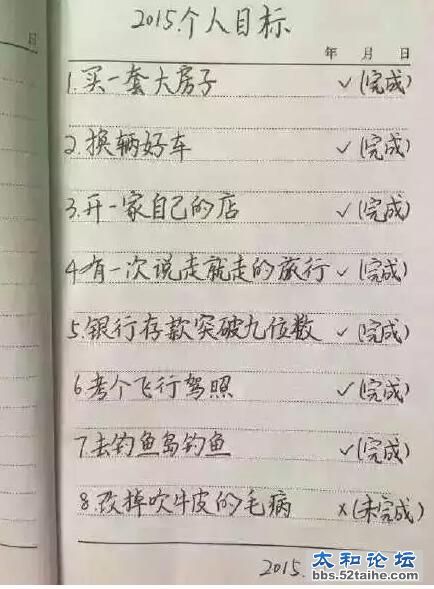 2015.个人目标
日
年 月 日
1.买一套大房子 ✓(完成)
2.换辆好车 ✓(完成)
3.开一家自己的店 ✓(完成)
4.有一次说走就走的旅行 ✓(完成)
5.银行存款突破九位数 ✓(完成)
6.考个飞行驾照 ✓(完成)
7.去钓鱼岛钓鱼 ✓(完成)
8.改掉吹牛皮的毛病 ×(未完成)
2015.
太和论坛
bbs.52taihe.com